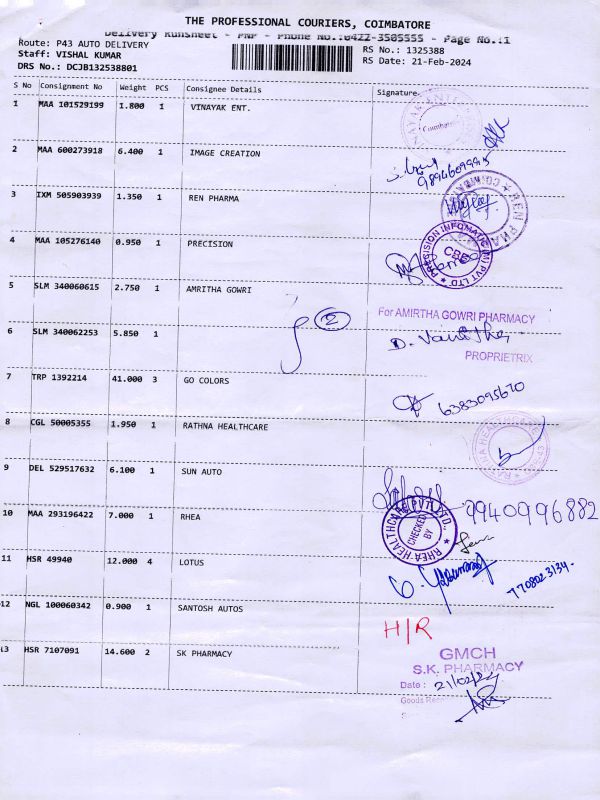 THE PROFESSIONAL COURIERS, COIMBATORE
Delivery Runsheet - PNP - Phone No.:0422-3505555 - Page No.:1
Route: P43 AUTO DELIVERY RS No.: 1325388
Staff: VISHAL KUMAR RS Date: 21-Feb-2024
DRS No.: DCJB132538801
S No Consignment No Weight PCS Consignee Details Signature
1 MAA 101529199 1.800 1 VINAYAK ENT.
2 MAA 600273918 6.400 1 IMAGE CREATION
9894609995
3 IXM 505903939 1.350 1 REN PHARMA
REN PHARMA
4 MAA 105276140 0.950 1 PRECISION
PRECISION INFOMATIC (M) PVT LTD
CBE
5 SLM 340060615 2.750 1 AMRITHA GOWRI
For AMIRTHA GOWRI PHARMACY
2
D.
PROPRIETRIX
6 SLM 340062253 5.850 1
7 TRP 1392214 41.000 3 GO COLORS
6383095670
8 CGL 50005355 1.950 1 RATHNA HEALTHCARE
9 DEL 529517632 6.100 1 SUN AUTO
9940996882
10 MAA 293196422 7.000 1 RHEA
RHEA HEALTHCARE PVT LTD.,
CHECKED
BY
11 HSR 49940 12.000 4 LOTUS
12 NGL 100060342 0.900 1 SANTOSH AUTOS
H/R
13 HSR 7107091 14.600 2 SK PHARMACY
GMCH
S.K. PHARMACY
Date : 21/02/24
Goods